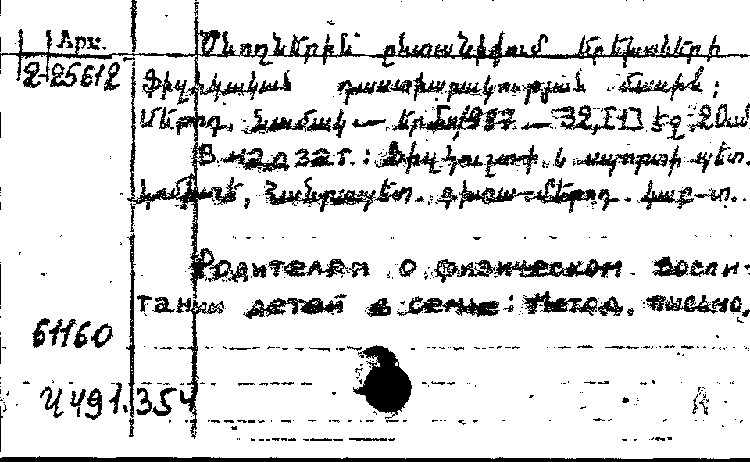 Арм.
2-25612
Ծնողներին՝ ընտանիքում երեխաների
ֆիզիկական դաստիարակության մասին:
Մեթոդ. նամակ — Եր., 1987 — 32,[1] էջ 20սմ
В надзаг.: Ֆիզկուլտ. և սպորտի պետ.
կոմիտե, Հանրապետ. գիտա-մեթոդ. կաբ-տ.
Родителям о физическом воспи-
тании детей в семье: Метод. письмо.
61160
Ч491.354